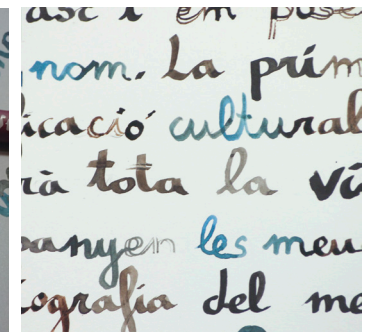 asc i em pose
nom. La prim
icació cultural
rà tota la vi
panyen les meu
iografia del me